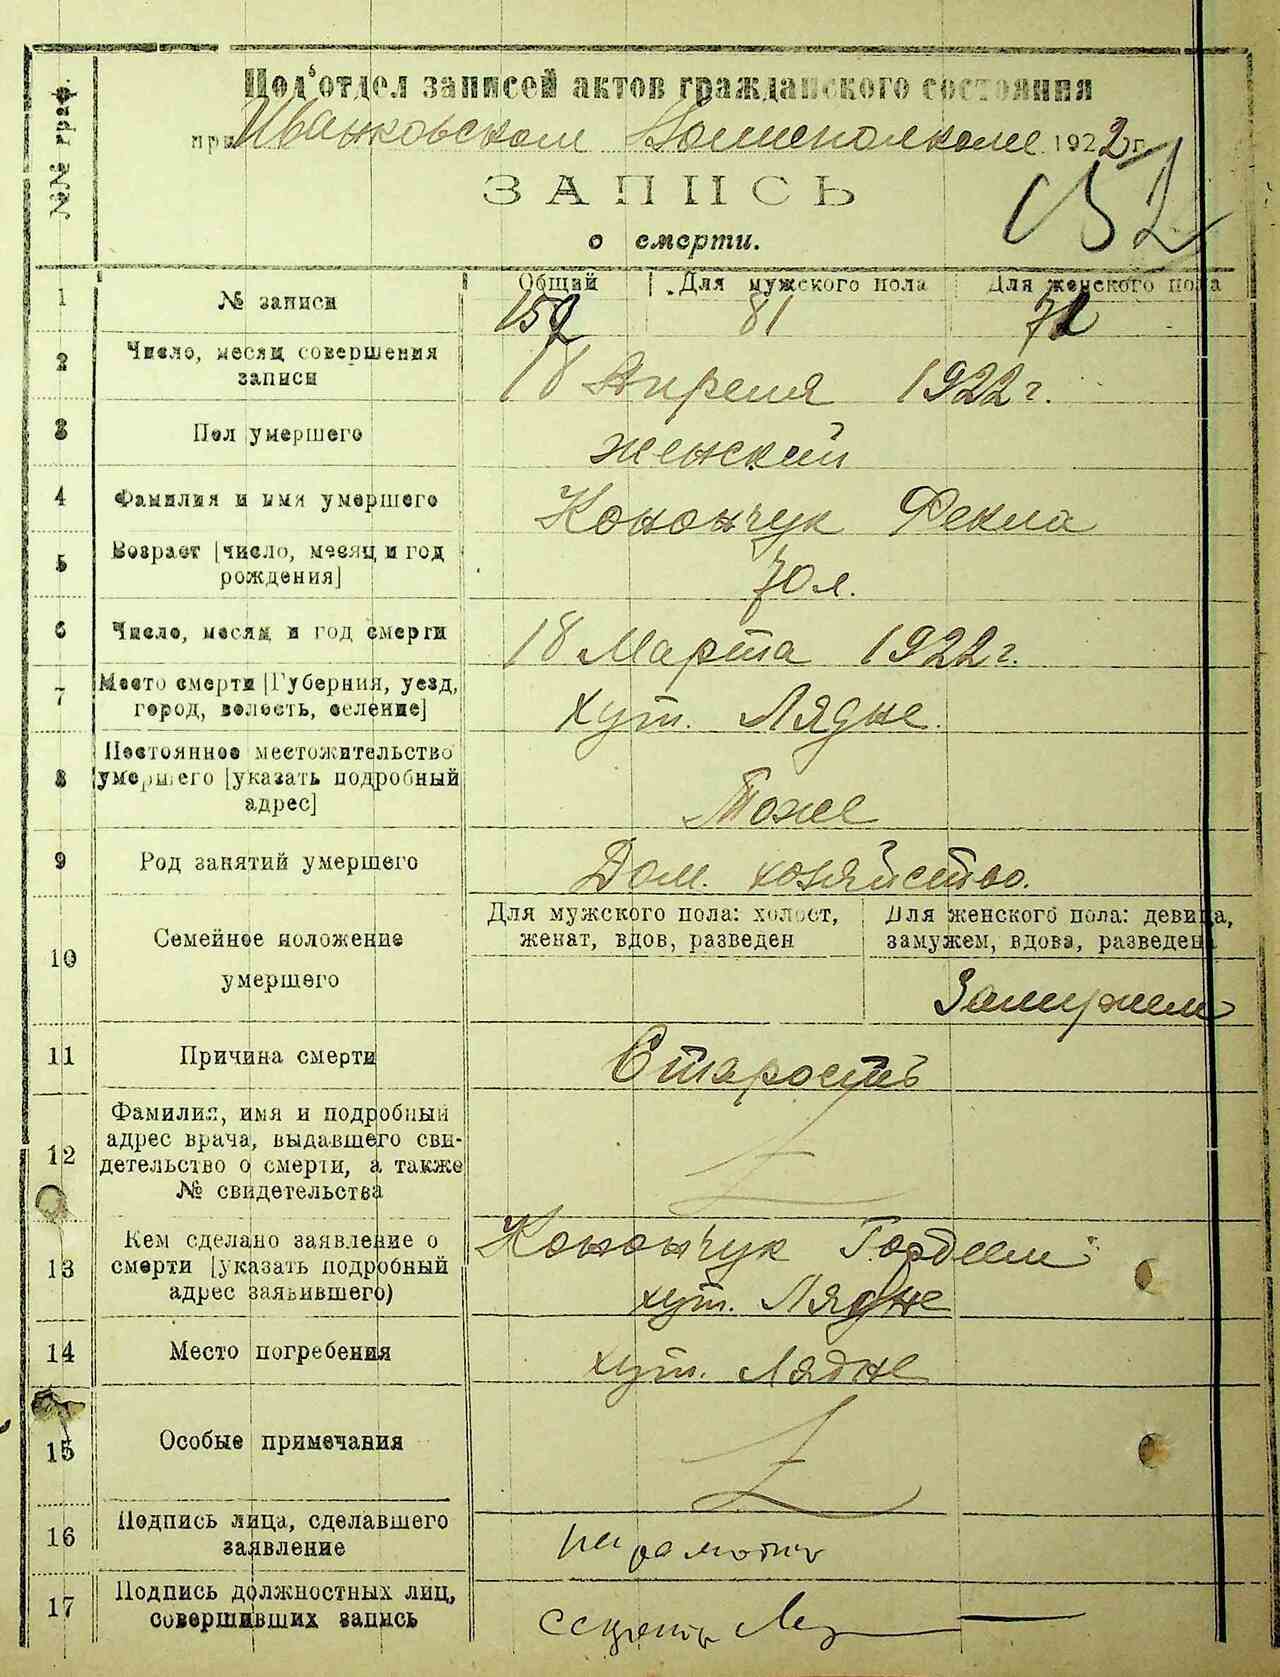 №№ граф.
Под'отдел записей актов гражданского состояния
при Иванковском Волисполкоме 1922 г.
152
ЗАПИСЬ
о смерти.
1 № записи Общий Для мужского пола Для женского пола
152 81 71
2 Число, месяц совершения записи
18 Апреля 1922 г.
3 Пол умершего
женский
4 Фамилия и имя умершего
Конончук Фекла
5 Возраст [число, месяц и год рождения]
70 л.
6 Число, месяц и год смерти
18 Марта 1922 г.
7 Место смерти [Губерния, уезд, город, волость, селение]
хут. Лядне.
8 Постоянное местожительство умершего [указать подробный адрес]
Тоже
9 Род занятий умершего
Дом. хозяйство.
10 Семейное положение умершего
Для мужского пола: холост, женат, вдов, разведен
Для женского пола: девица, замужем, вдова, разведен
Замужем
11 Причина смерти
Старость
12 Фамилия, имя и подробный адрес врача, выдавшего свидетельство о смерти, а также № свидетельства
13 Кем сделано заявление о смерти [указать подробный адрес заявившего)
Конончук Гордеем
хут. Лядне
14 Место погребения
хут. Лядне
15 Особые примечания
16 Подпись лица, сделавшего заявление
неграмотна
17 Подпись должностных лиц, совершивших запись